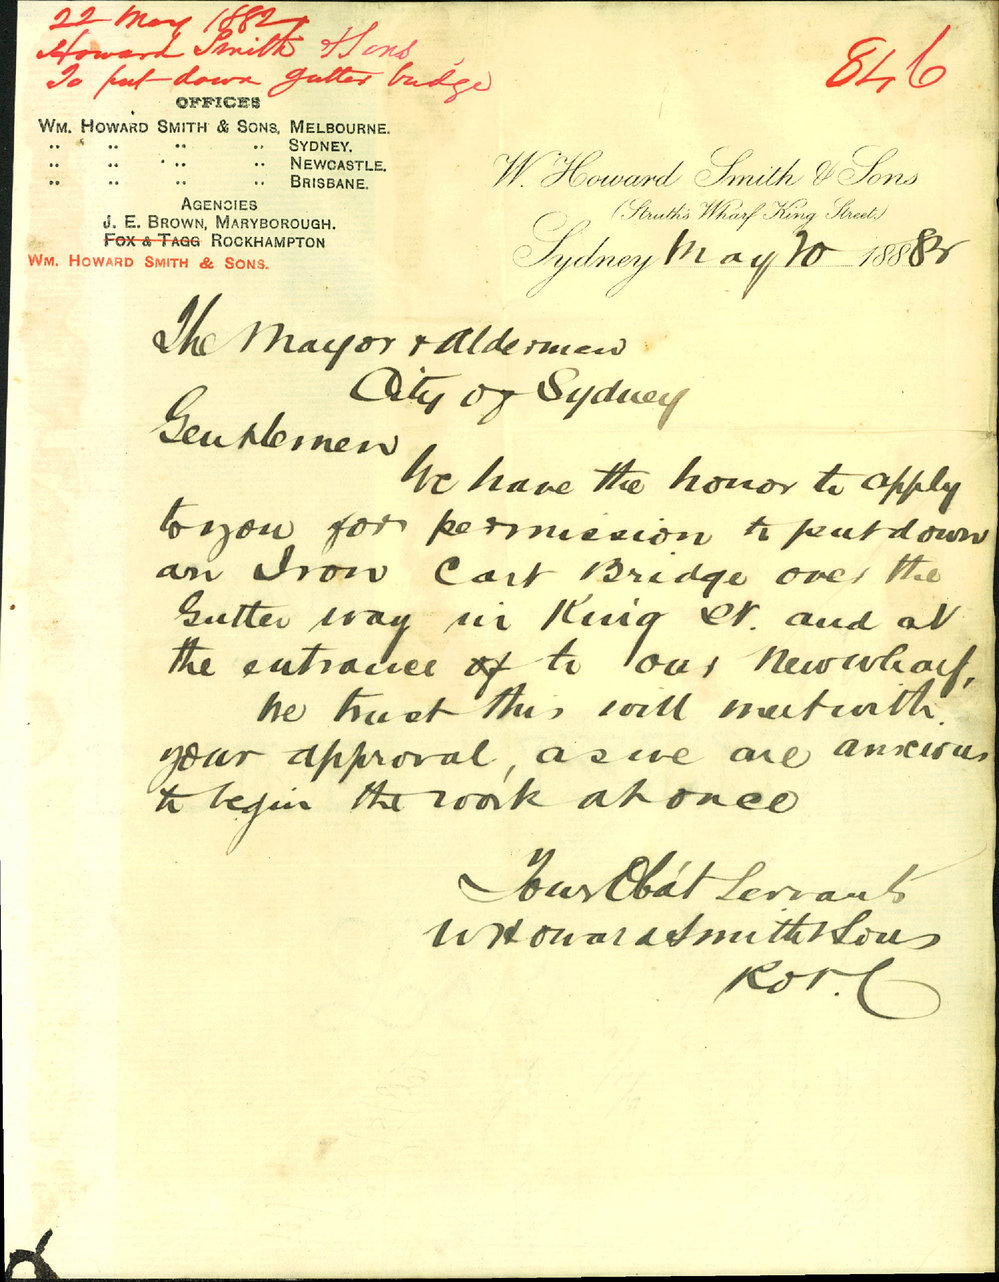 22 May 1882
Howard Smith & Sons
To put down gutter bridge
846
OFFICES
WM. HOWARD SMITH & SONS, MELBOURNE.
" " " " SYDNEY.
" " " " NEWCASTLE.
" " " " BRISBANE.
AGENCIES
J. E. BROWN, MARYBOROUGH.
FOX & TAGG ROCKHAMPTON
WM. HOWARD SMITH & SONS.
W. Howard Smith & Sons
(Struth's Wharf King Street.)
Sydney May 20 1882
The Mayor & Aldermen
City of Sydney
Gentlemen
We have the honor to apply
to you for permission to put down
an Iron Cart Bridge over the
Gutter way in King St. and at
the entrance of to our New wharf,
We trust this will meet with
your approval, as we are anxious
to begin the work at once
Your Obdt Servants
W Howard Smith & Sons